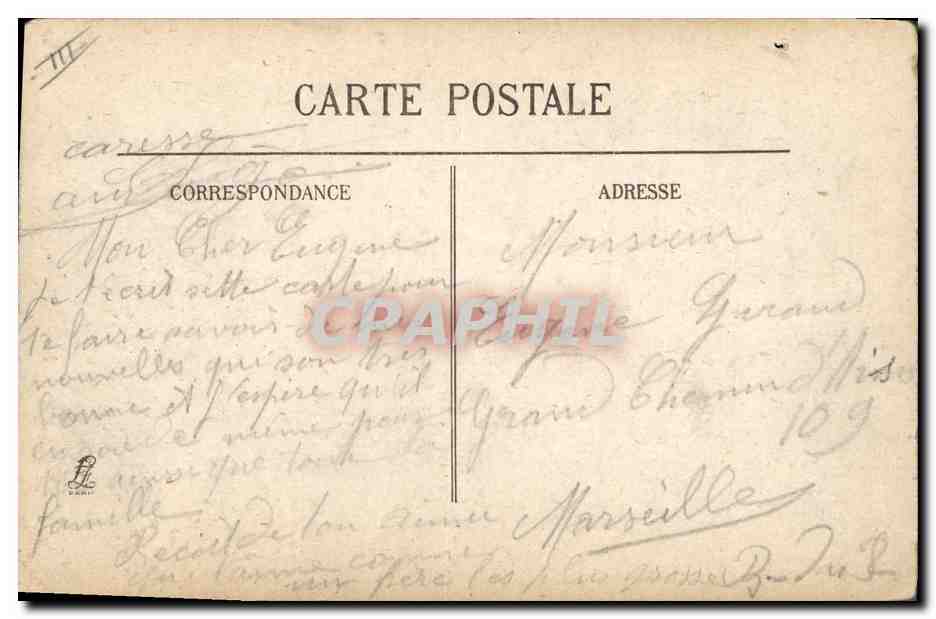 III
CARTE POSTALE
caresse
CORRESPONDANCE
ADRESSE
Mon Cher Eugene
je t'écrit sette carte pour
te faire savoir de mes
nouvelles qui son tres
bonne et j'espire qu'il
en de même pour
toi ainsi que toute la
famille
Recoit de ton amie
qui t'aime comme
un frère les plus grosse
Monsieur
Eugene Giraud
Grand Chemin d'Aix
109
Marseille
B du R
LL
PARIS
CPAPHIL